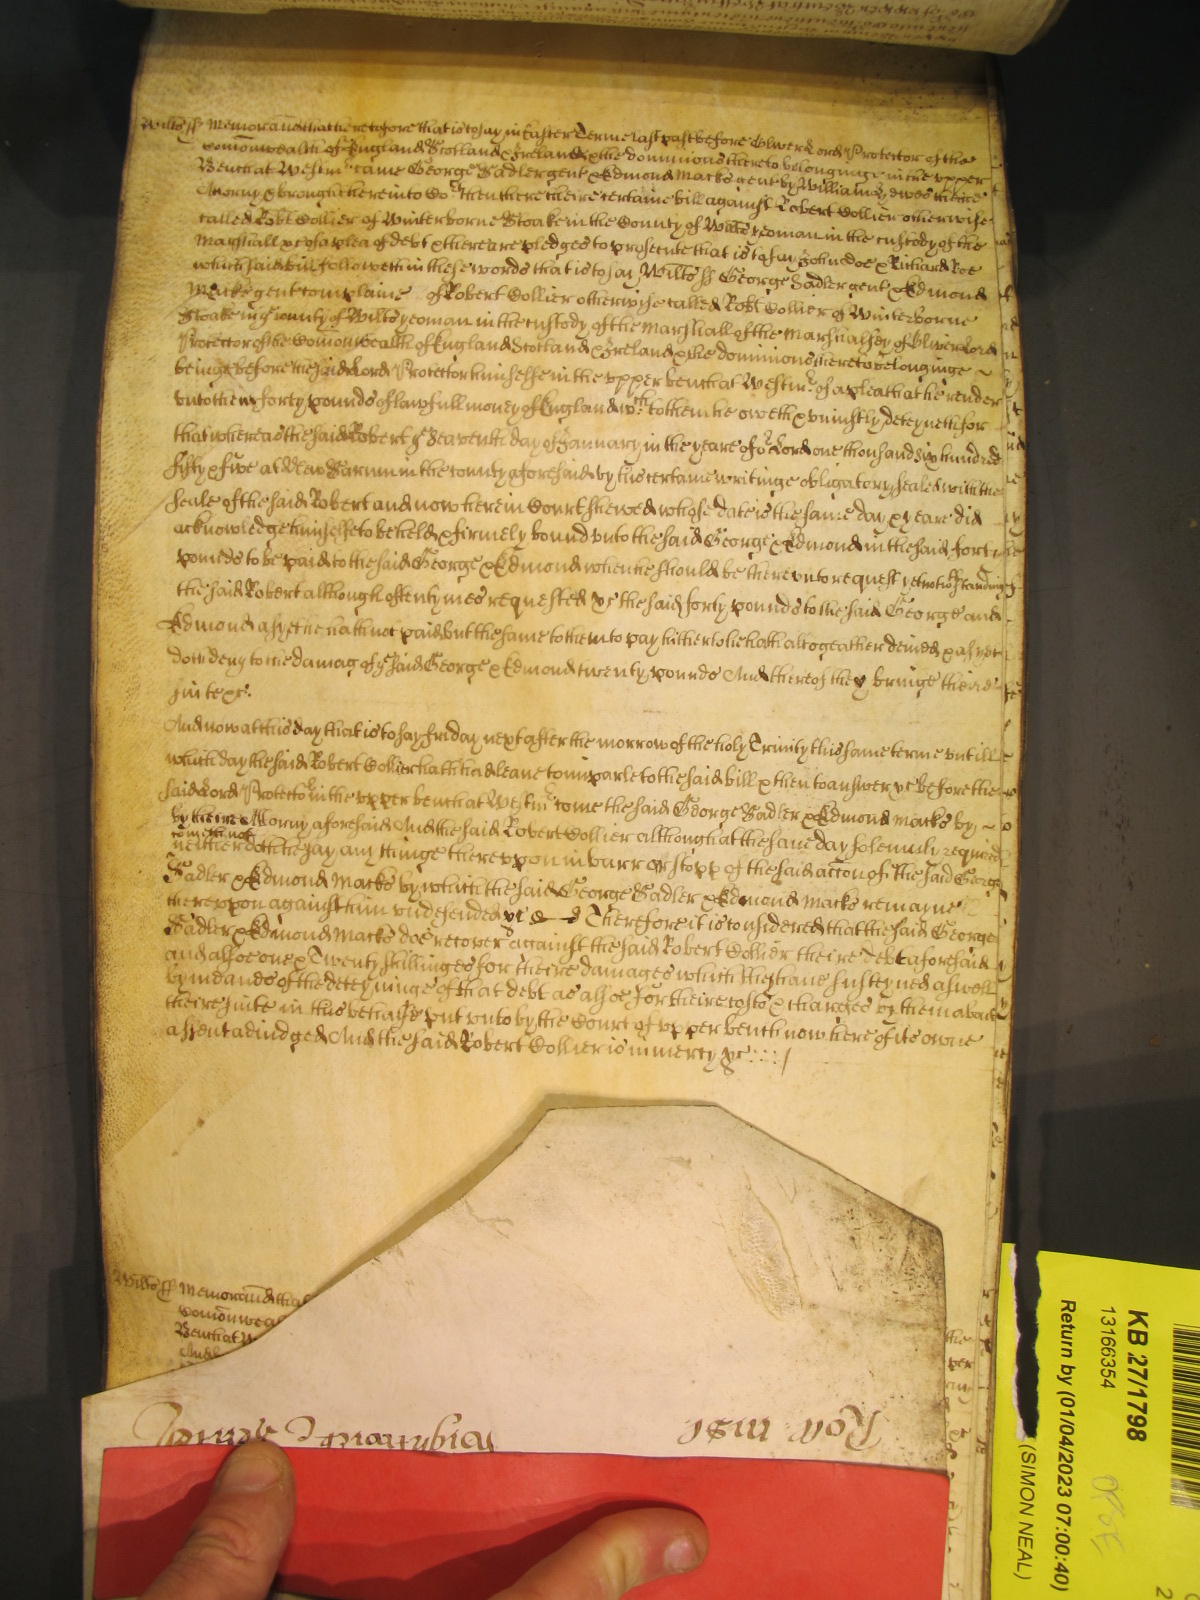 Wilts ss Memorand that heretofore that is to say in Easter Terme last past before Oliver Lord Protector of the
Comonwealth of England Scotland & Ireland & the dominions thereto belonginge in the upper
Bench at Westmr came George Sadler gent & Edmond Macks gent by William
Attorny & brought here into Cort then there theire certaine bill against Robert Collier otherwise
called Robt Collier of Winterborne Stoake in the County of Wilts yeoman in the custody of the
Marshall &c of a plea of debt & there are pledges to prosecute that is to say John Doe & Richard Roe
which said bill followeth in these words that is to say Wilts ss George Sadler gent & Edmond
Macks gent complaine of Robert Collier otherwise called Robt Collier of Winterborne
Stoake in ye County of Wilts yeoman in the custody of the Marshall of the Marshalsey of Oliver Lord
Protector of the Comonwealth of England Scotland & Ireland & the dominions thereto belonginge
beinge before the said Lord Protector himselfe in the upper bench at Westmr of a plea that he render
unto them forty pounds of lawfull money of England wch to them he oweth & uniustly deteyneth for
that whereas the said Robert ye Seaventh day of January in the yeare of or Lord one thousand six hundred
fifty & five at New Sarum in the county aforesaid by his certaine writinge obligatory sealed with the
seale of the said Robert and now here in Court shewed whose date is the same day & yeare did
acknowledge himselfe to be held & firmely bound unto the said George & Edmond in the said forty
pounds to be paid to the said George & Edmond when he should be thereunto request yet notwthstandinge
the said Robert although oftentymes requested &c the said forty pounds to the said George and
Edmond as yet he hath not paid but the same to them to pay hitherto he hath altogeather denied & as yet
doth deny to the damag of ye said George & Edmond twenty pounds And thereof they bringe theire
suite &c.
And now at this day that is to say Friday next after the morrow of the holy Trinity this same terme untill
which day the said Robert Collier hath had leave to imparle to the said bill & then to answer &c before the
said Lord Protector in the upper bench at Westmr come the said George Sadler & Edmond Macks by
by theire Attorny aforesaid And the said Robert Collier although at the same day solemnly required
cometh not
neither doth he say any thinge thereuppon in barr or stopp of the said accon of the said George
Sadler & Edmond Macks by which the said George Sadler & Edmond Macks remayne
thereuppon against him undefended &c Therefore it is considered that the said George
Sadler & Edmond Macks doe recover against the said Robert Collier theire debt aforesaid
and alsoe one & Twenty shillinges for theire damages which they have susteyned aswell
by of the deteyninge of that debt as alsoe for theire costs & charges by them about
theire suite in this behalfe put unto by the Court of upper bench now here of its owne
assent adiudged And the said Robert Collier is in mercy &c
Wilts ss Memorand that
Comonwea
Bench at W
KB 27/1798
13166354
Return by (01/04/2023 07:00:40)
(SIMON NEAL)